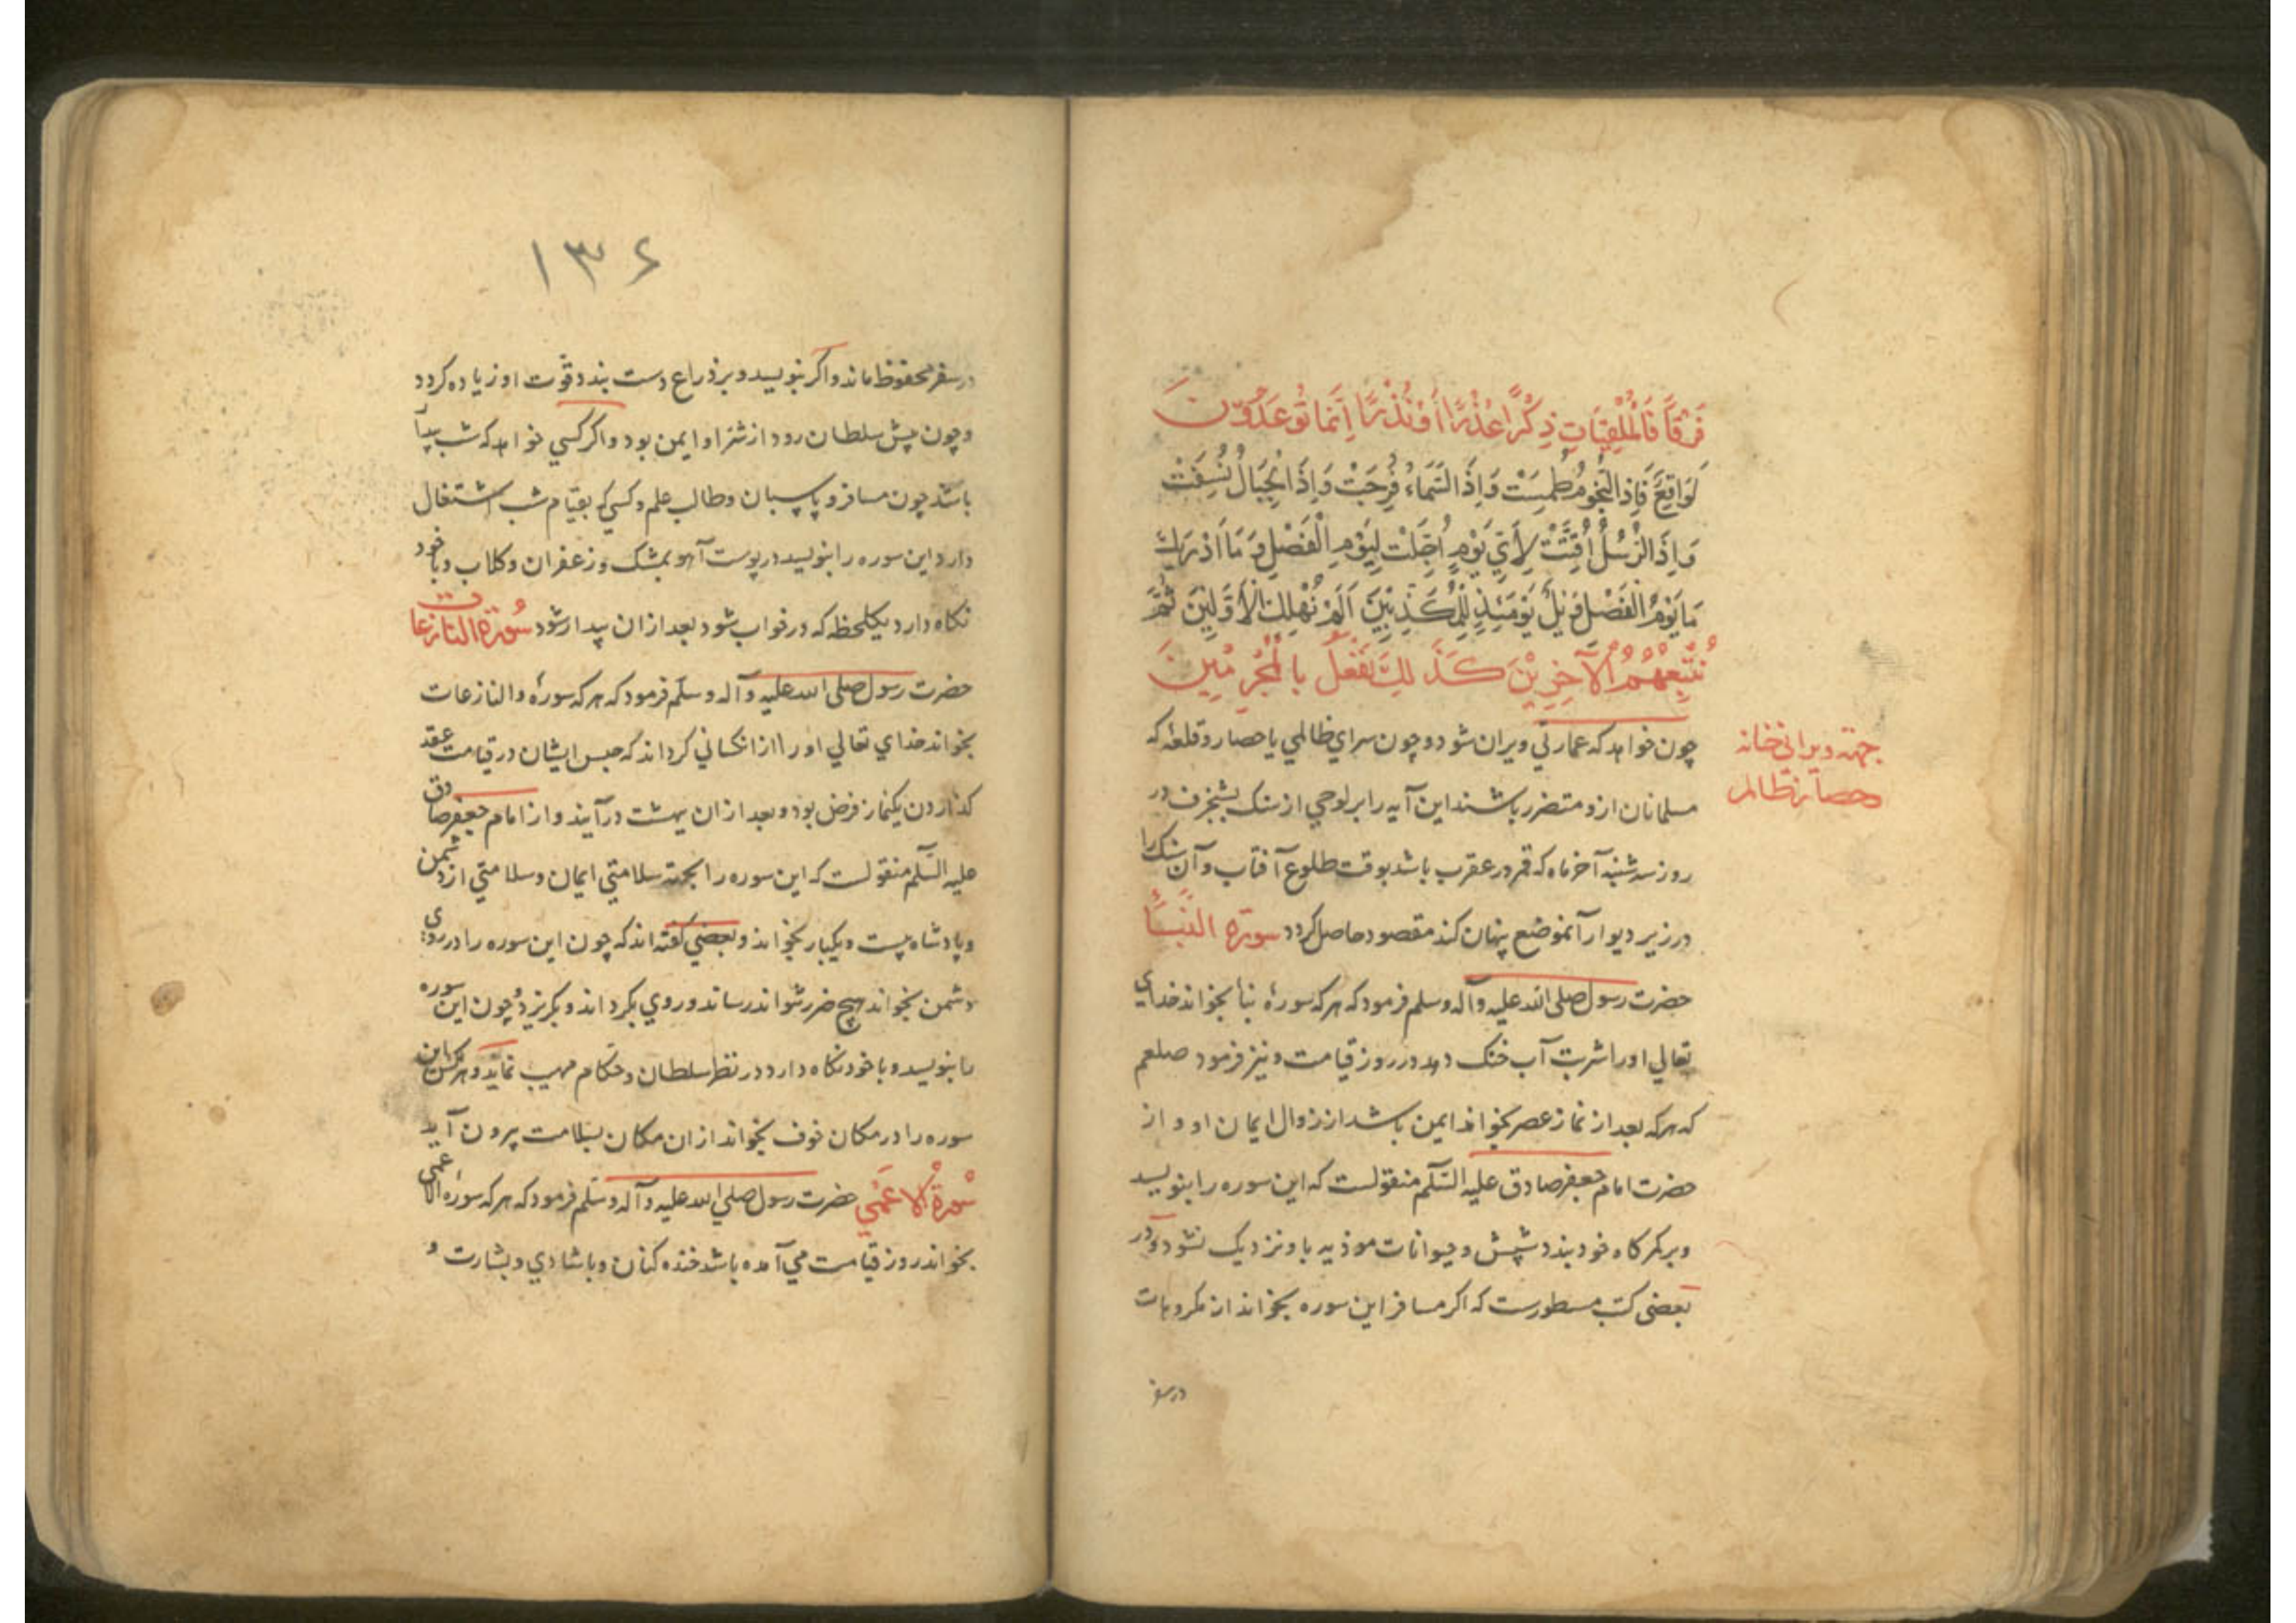 فَرْقًا فَالْمُلْقِيَاتِ ذِكْرًا عُذْرًا أَوْ نُذْرًا إِنَّمَا تُوعَدُونَ
لَوَاقِعٌ فَإِذَا النُّجُومُ طُمِسَتْ وَإِذَا السَّمَاءُ فُرِجَتْ وَإِذَا الْجِبَالُ نُسِفَتْ
وَإِذَا الرُّسُلُ أُقِّتَتْ لِأَيِّ يَوْمٍ أُجِّلَتْ لِيَوْمِ الْفَصْلِ وَمَا أَدْرَاكَ
مَا يَوْمُ الْفَصْلِ وَيْلٌ يَوْمَئِذٍ لِلْمُكَذِّبِينَ أَلَمْ نُهْلِكِ الْأَوَّلِينَ ثُمَّ
نُتْبِعُهُمُ الْآخِرِينَ كَذَلِكَ نَفْعَلُ بِالْمُجْرِمِينَ
چون خواهد که عمارتي ويران شود و چون سراي ظالمي يا حصار و قلعهٔ که
جهة ويراني خانه
وحصار ظالم
مسلمانان ازو متضرر باشند اين آيه را بر لوحي از سنک بشنجرف در
روز سه شنبه آخر ماه که قمر در عقرب باشد بوقت طلوع آفتاب و آن سنک را
در زير ديوار آنموضع پنهان کند مقصود حاصل کردد سورة النبأ
حضرت رسول صلى الله عليه وآله وسلم فرمود که هر که سورهٔ نبأ بخواند خداي
تعالي او را شربت آب خنک دهد در روز قيامت و نيز فرمود صلعم
که هر که بعد از نماز عصر بخواند ايمن باشد از زوال ايمان او و از
حضرت امام جعفر صادق عليه السّلم منقولست که اين سوره را بنويسد
و بر کمرکاه خود بندد شپش و حيوانات موذيه باو نزديک نشود و در
بعضي کتب مسطورست که اکر مسافر اين سوره بخواند از مکروهات
در سفر
۱۳۶
در سفر محفوظ ماند و اکر بنويسد و بر ذراع دست بندد قوّت او زياده کردد
و چون پيش سلطان رود از شرّ او ايمن بود و اکر کسي خواهد که شب بيدا
باشد چون مسافر و پاسبان و طالب علم و کسي که بقيام شب اشتغال
دارد اين سوره را بنويسد در پوست آهو بمشک و زعفران و کلاب و با خود
نکاه دارد يکلحظه که در خواب شود بعد از ان بيدار شود سُورة النازعات
حضرت رسول صلى الله عليه وآله وسلّم فرمود که هر که سورهٔ والنازعات
بخواند خداي تعالي او را از انکساني کرداند که حبس ايشان در قيامت عقد
کذاردن يکنماز فرض بود و بعد از ان ببهشت درآيند و از امام جعفر صادق
عليه السّلم منقولست که اين سوره را بجهة سلامتي ايمان و سلامتي از دشمن
و پادشاه بيست و يکبار بخواند و بعضي کفته اند که چون اين سوره را در روي
دشمن بخواند هيچ ضرر نتواند رساند و روي بکرداند و بکريزد و چون اين سوره
را بنويسد و با خود نکاه دارد در نظر سلطان و حکام مهيب نمايد و هر کس اين
سوره را در مکان خوف بخواند از ان مکان بسلامت بيرون آيد
سُورةُ الاعمي حضرت رسول صلي الله عليه وآله وسلّم فرمود که هر که سورهٔ الاعمى
بخواند روز قيامت مي آمده باشد خنده کنان و با شادي و بشارت و